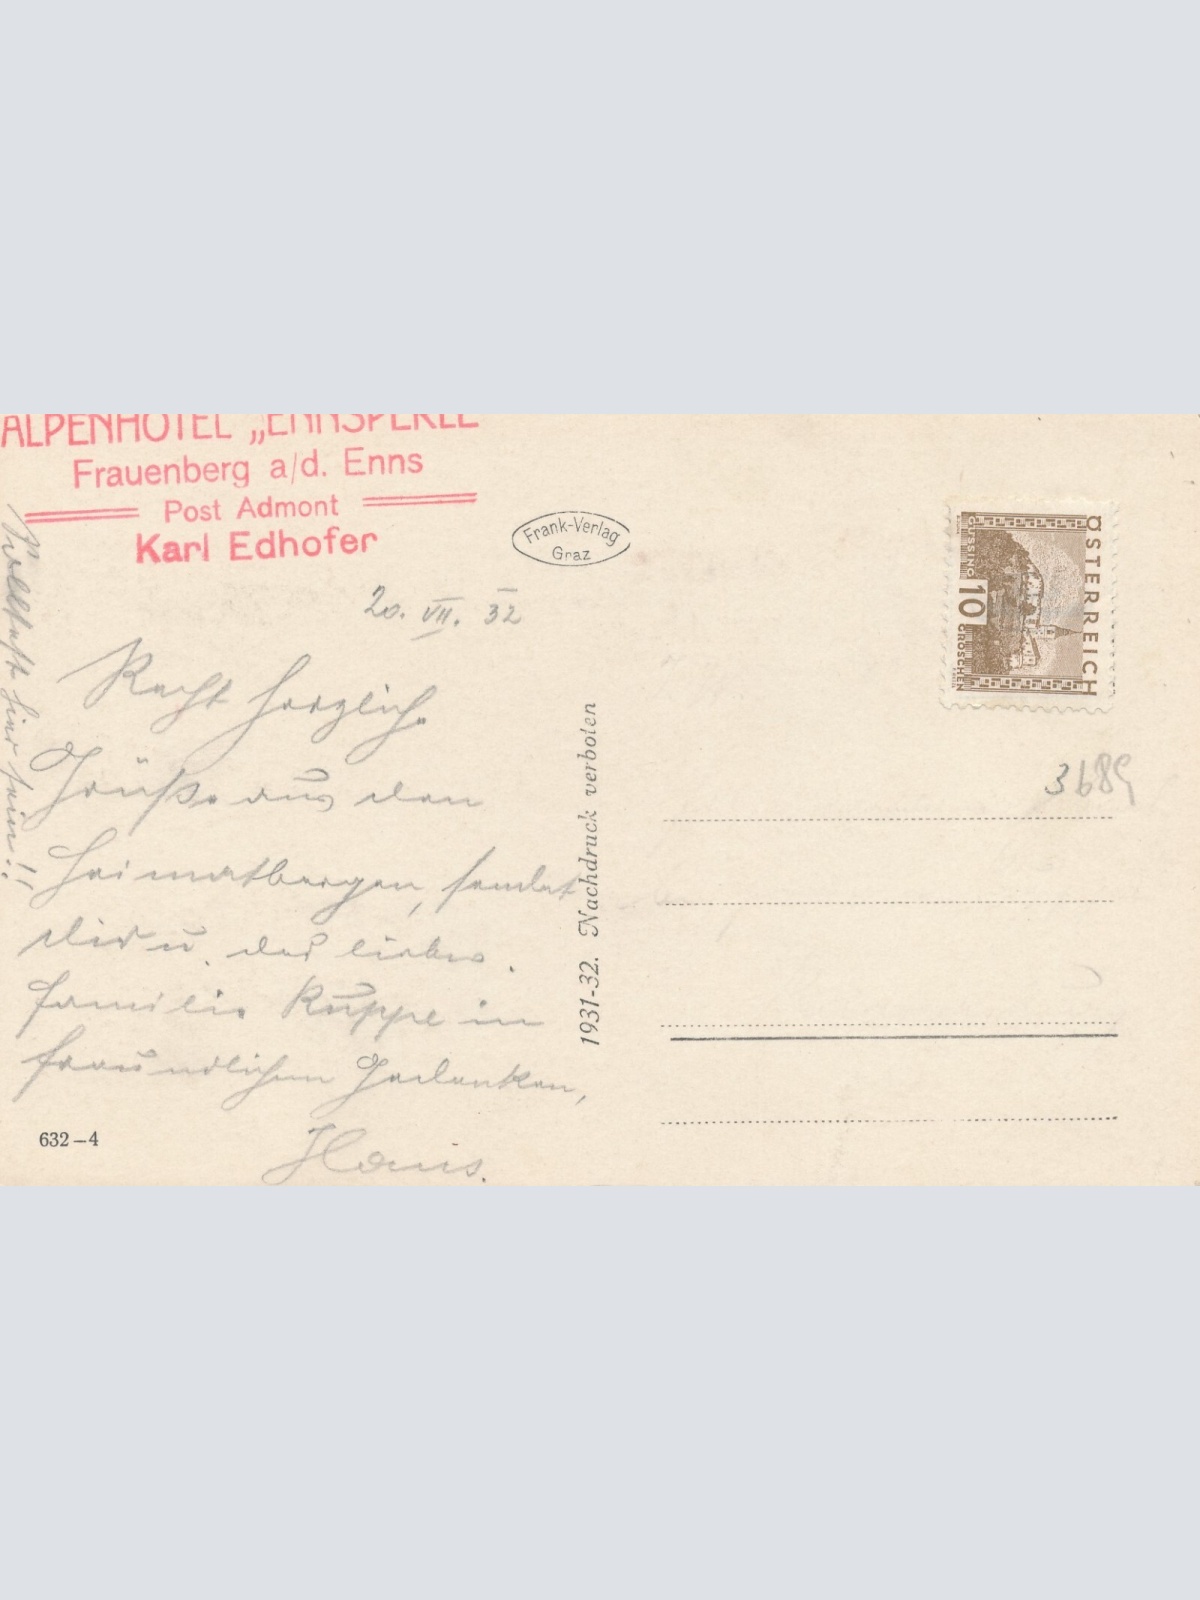 ALPENHOTEL „ENNSPERLE
Frauenberg a/d. Enns
Post Admont
Karl Edhofer
Frank-Verlag
Graz
20. VII. 32
Recht herzliche
Grüße aus den
Heimatbergen, sendet
Dir u. der lieben
Familie Ruppe in
freundlichem Gedenken,
Hans.
hier sein!!
632-4
1931-32. Nachdruck verboten
ÖSTERREICH
GÜSSING
10
GROSCHEN
3689